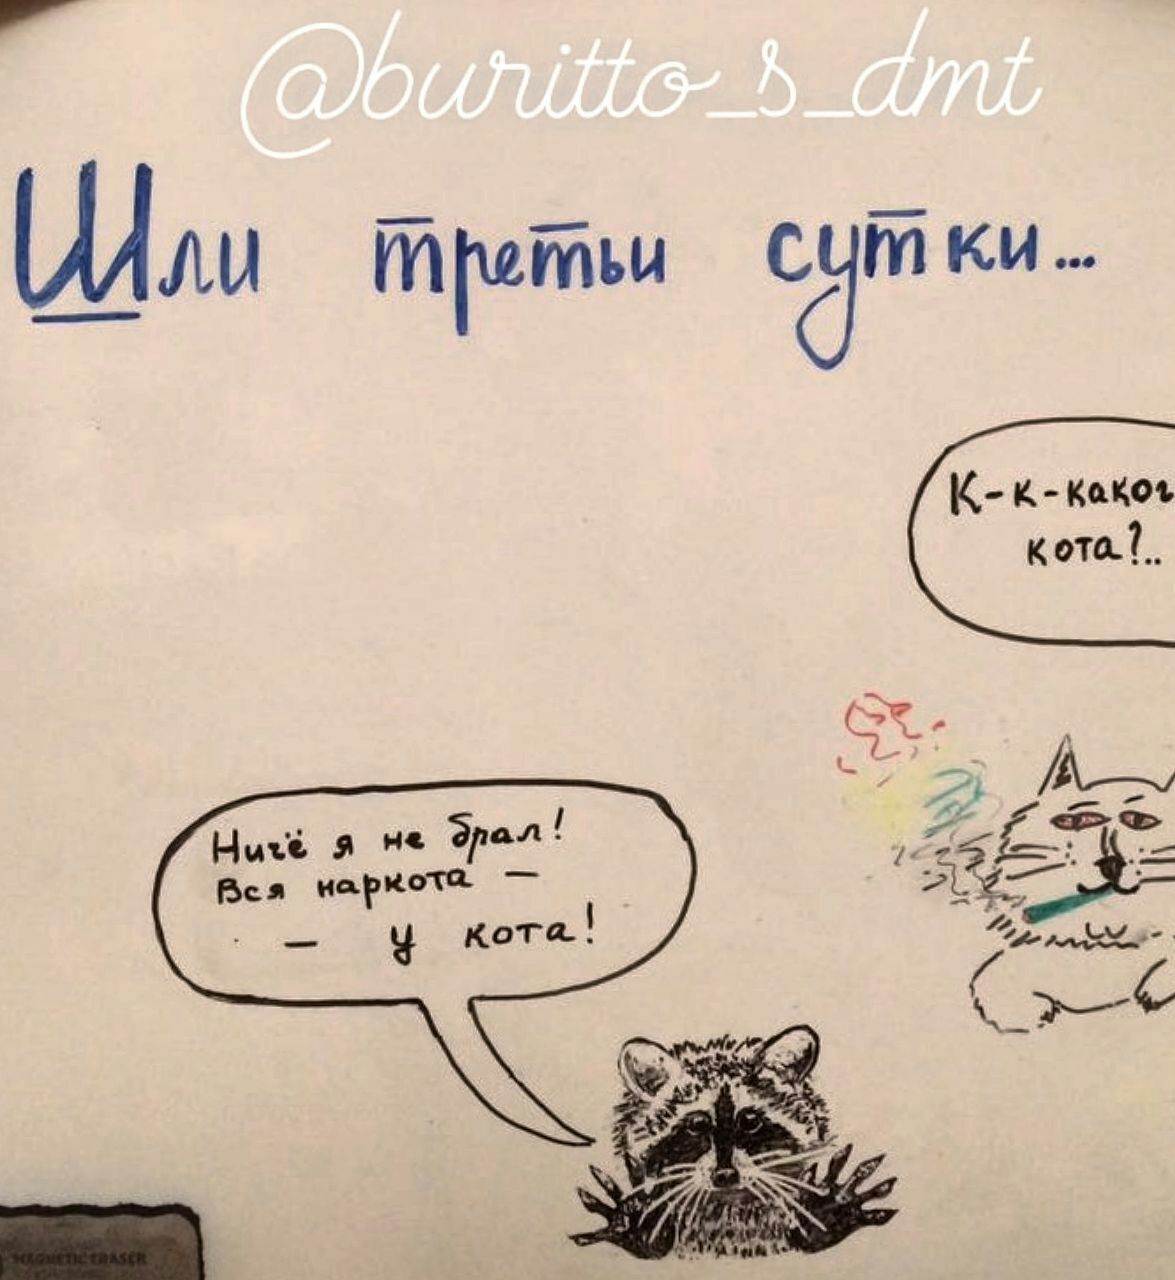 @buritto_s_dmt
Шли третьи сутки...
К-к-каког
кота?..
Ничё я не брал!
Вся наркота —
— у кота!
MAGNETIC ERASER